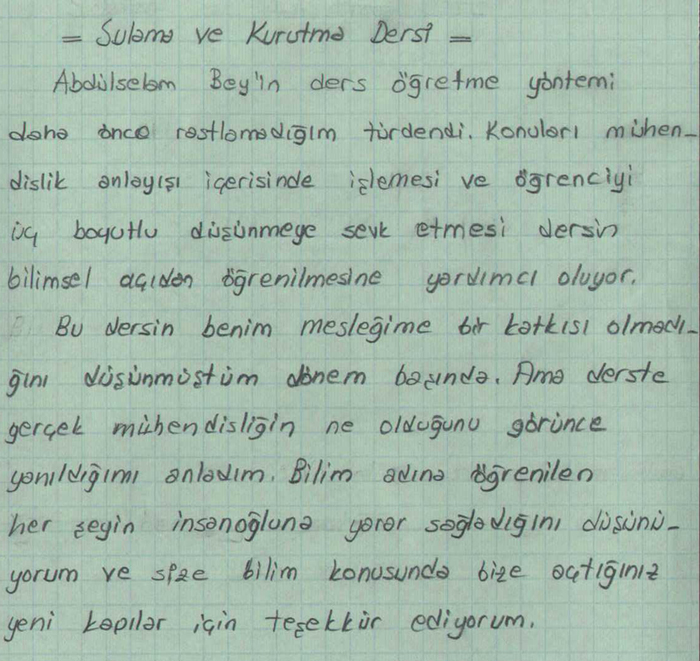 = Sulama ve Kurutma Dersi =
Abdülselam Bey'in ders öğretme yöntemi
daha önce rastlamadığım türdendi. Konuları mühen-
dislik anlayışı içerisinde işlemesi ve öğrenciyi
üç boyutlu düşünmeye sevk etmesi dersin
bilimsel açıdan öğrenilmesine yardımcı oluyor.
Bu dersin benim mesleğime bir katkısı olmadı-
ğını düşünmüştüm dönem başında. Ama derste
gerçek mühendisliğin ne olduğunu görünce
yanıldığımı anladım. Bilim adına öğrenilen
her şeyin insanoğluna yarar sağladığını düşünü-
yorum ve size bilim konusunda bize açtığınız
yeni kapılar için teşekkür ediyorum.